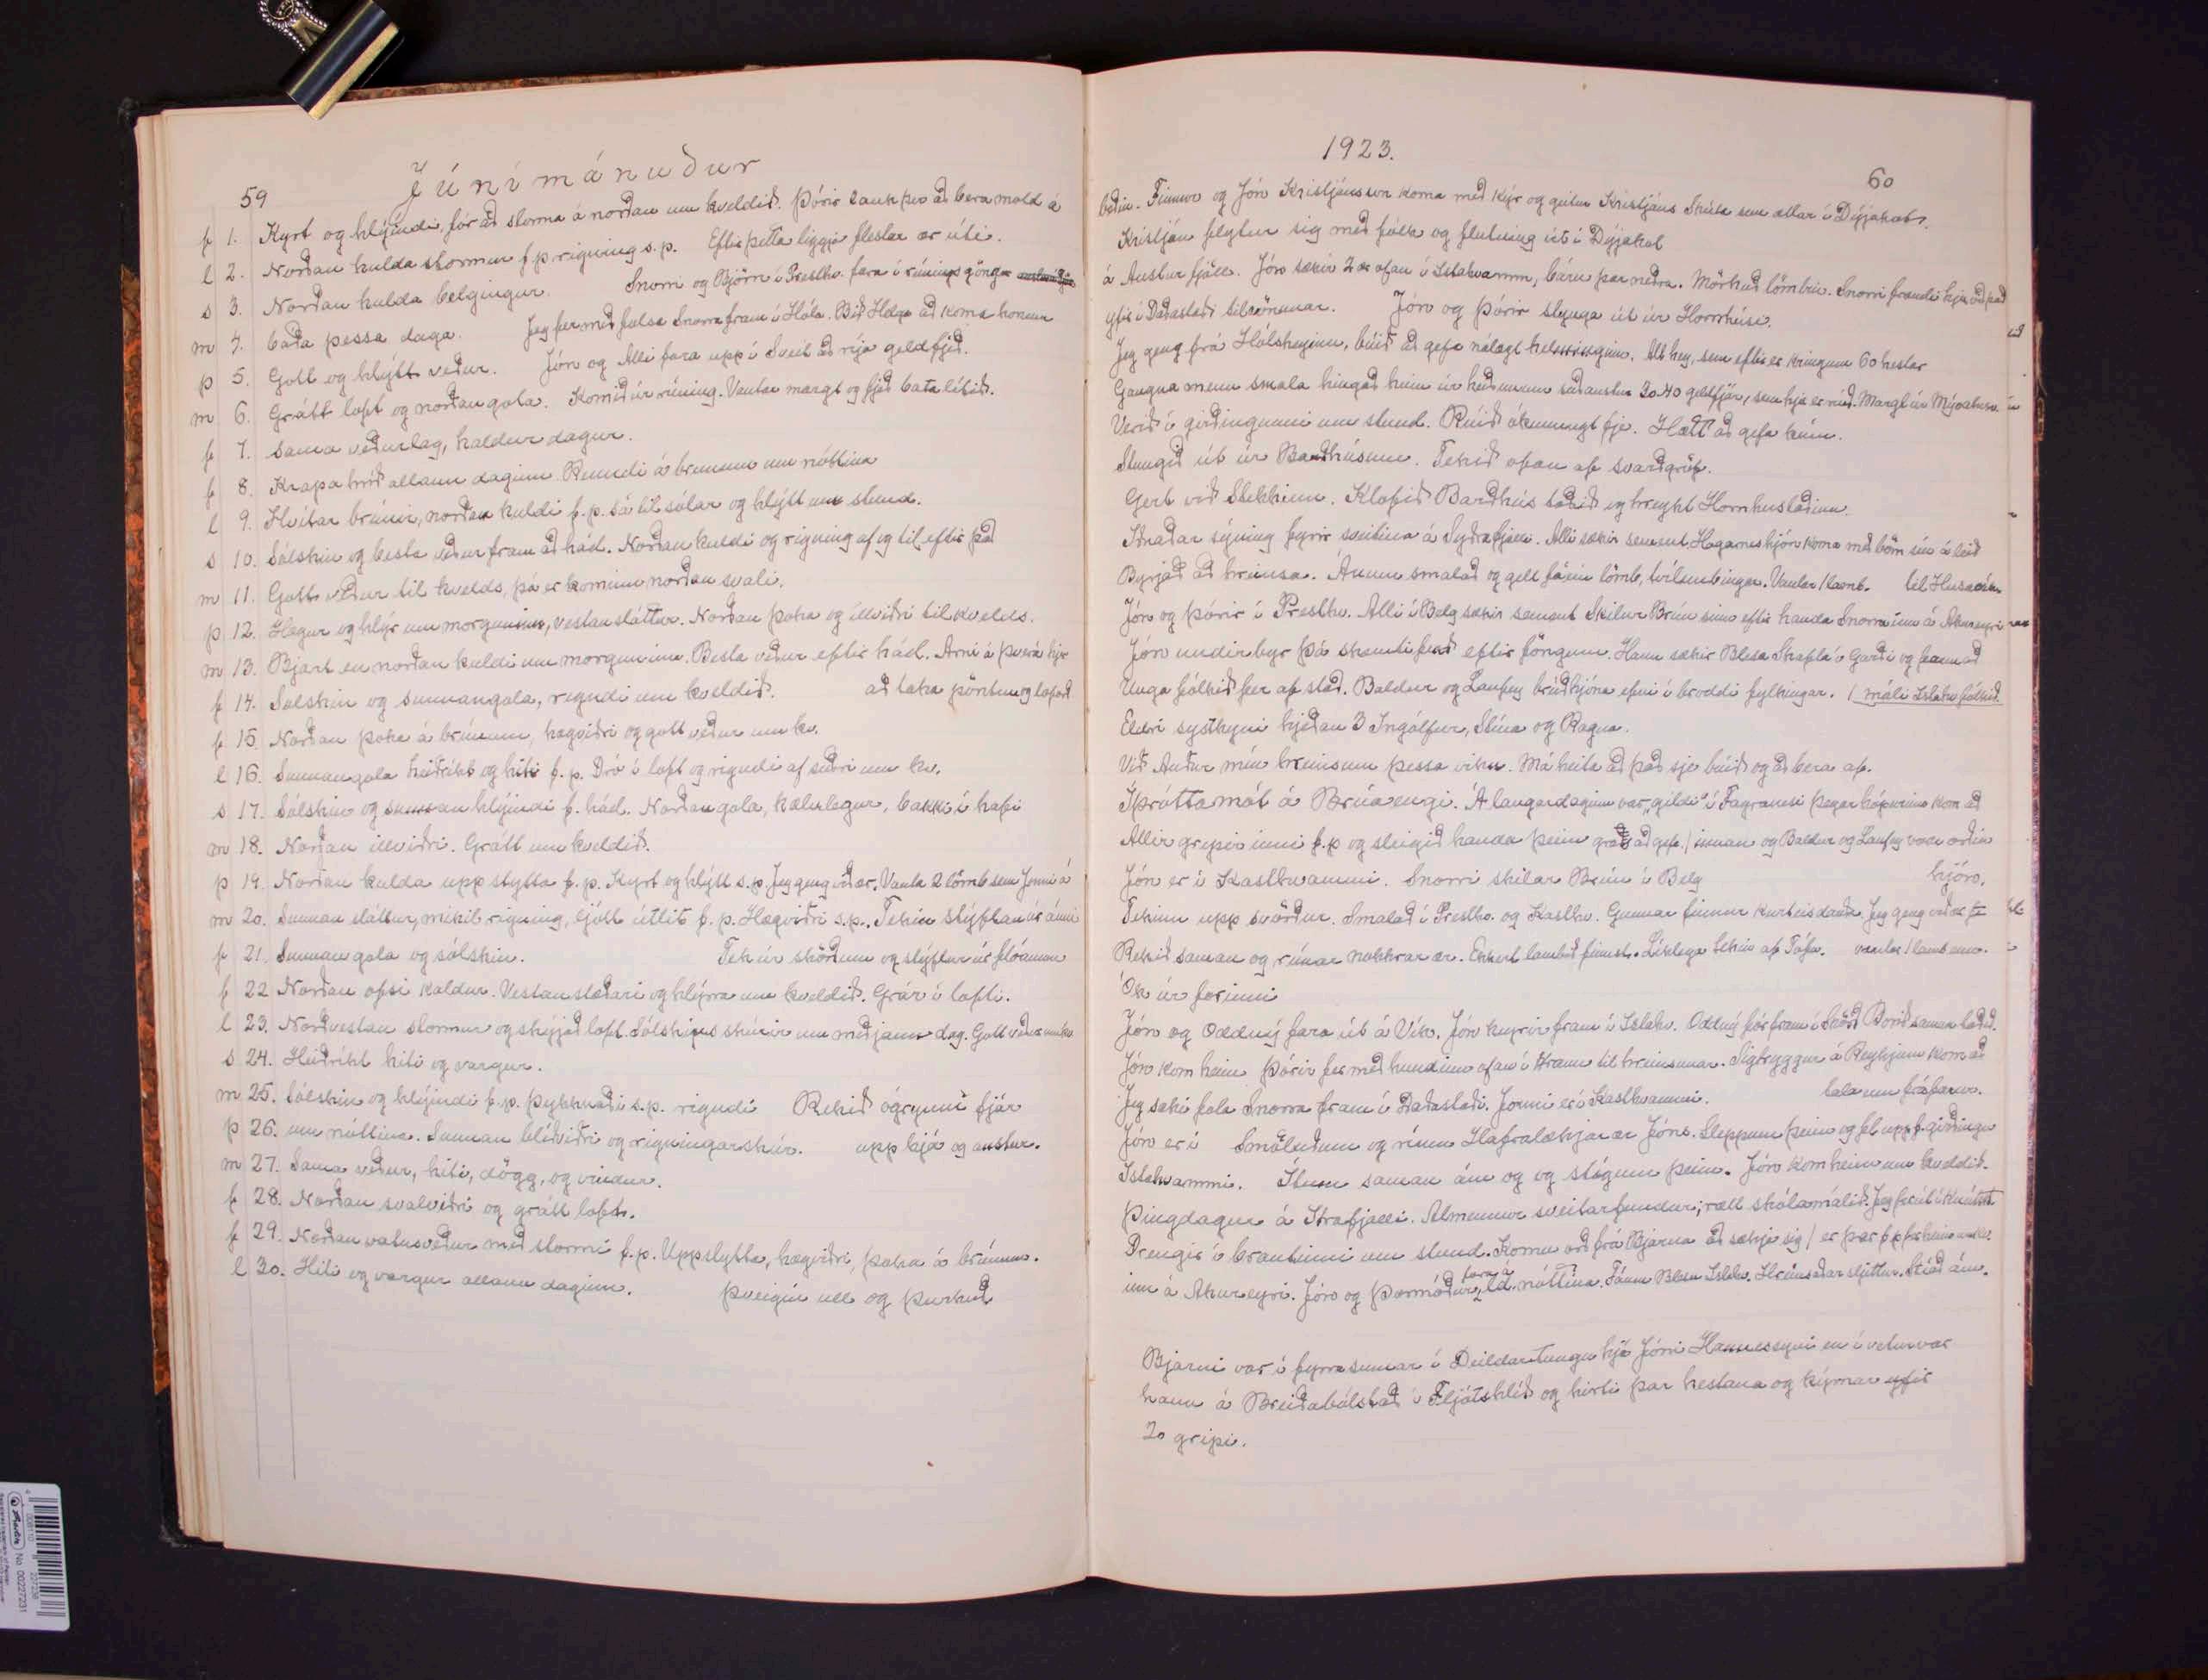 59
Júnímánuður
f 1. Kyrt og hlýindi, fór að storma á norðan um kveldið. Þórir lauk því að bera mold á
l 2. Norðan kulda stormur f.p. rigning s.p. Eftir þetta liggja flestar ær úti.
s 3. Norðan kulda belgingur. Snorri og Björn í Presthv. fara í rúningsgöngur
m 4. báða þessa daga. Jeg fer með fulsa Snorra fram í Hóla. Bið Helga að koma honum
þ 5. Gott og hlýtt veður. Jón og Alli fara upp í Sveit að rýja geldfjeð.
m 6. Grátt loft og norðan gola. Komið úr rúning. Vantar margt og fjeð bata lítið.
f 7. Sama veðurlag, kaldur dagur.
f 8. Krapahríð allann daginn Renndi á brununn um nóttina
l 9. Hvítar brúnir, norðan kuldi f.p. Sá til sólar og hlýtt um stund.
s 10. Sólskin og besta veður fram að hád. Norðan kuldi og rigning af og til eftir það
m 11. Gott veður til kvelds, þá er kominn norðan svali.
þ 12. Hægur og hlýr um morguninn, vestan sláttur. Norðan þoka og illviðri til kvelds.
m 13. Bjart en norðan kuldi um morguninn. Besta veður eftir hád. Árni á Þverá hjer
f 14. Sólskin og sunnangola, rigndi um kveldið. að taka pöntun og lofoð
f 15. Norðan þoka á brúnum, hægviðri og gott veður um kv.
l 16. Sunnangola heiðríkt og hiti f.p. Dró í loft og rigndi af suðri um kv.
s 17. Sólskin og sunnan hlýindi f. hád. Norðan gola, kælulegur, bakki í hafi
m 18. Norðan illviðri. Grátt um kveldið.
þ 19. Norðan kulda uppstytta f.p. Kyrt og hlýtt s.p. Jeg geng við ær. Vanta 2 lömb sem Jonni á
m 20. Sunnan sláttur, mikil rigning, ljótt útlit f.p. Hægviðri s.p. Tekin stýflan úr ánni
f 21. Sunnangola og sólskin. Tek úr skörðum og stýflur úr flóanum
f 22 Norðan ofsi kaldur. Vestanstæðari og hlýrra um kveldið. Grár í lofti.
l 23. Norðvestan stormur og skýjað loft. Sólskins skúrir um miðjann dag. Gott veður um kv
s 24. Heiðríkt hiti og vargur.
m 25. Sólskin og hlýindi f.p. þykknaði s.p. rigndi Rekið ógrynni fjár
þ 26. um nóttina. Sunnan blíðviðri og rigningarskúr. upp hjá og austur.
m 27. Sama veður, hiti, dögg, og vindur.
f 28. Norðan svalviðri og grátt loft.
f 29. Norðan vatnsveður með stormi f.p. Uppstytta, hægviðri, þoka á brúnum.
l 30. Hiti og vargur allann daginn. Þveigin ull og þurkuð
1923.
60
beðin. Finnur og Jón Kristjánsson koma með kýr og geitur Kristjáns Skúta sem ætlar í Dýjakot.
Kristján flytur sig með fólk og flutning út í Dýjakot
á Austur fjöll. Jón sækir 2 ær ofan í Ístahvamm, báru þar neðra. Mörkuð lömbin. Snorri frændi hjer að það
yfir í Daðastaði til rönunar. Jón og Þórir stynga út úr Hornhúsi.
Jeg geng frá Hólsheyinu, búið að gefa nálægt helmingin. Alt hey, sem eftir er kringum 60 hestar
Gangna menn smala hingað heim úr heiðunum suðaustur 30-40 geldfjár, sem hjer er rúið. Margt úr Mývatnsv.
Verið í girðingunni um stund. Rúið ókunnugt fje. Hætt að gefa kúm.
Stungið út úr Barðhúsunum. Tekið ofan af svarðgröf.
Gert við Stekkinn. Klofið Barðhús taðið og hreykt Hornhustaðinu.
Hnaðar sýning fyrir sveitina á Syðrafjalli. Alli sækir sement. Hagamesshjón koma með börn sín á leið
Byrjað að hreinsa. Ánum smalað og gelt fáein lömb, tvílembingar. Vantar 1 lamb. til Húsavíkur
Jón og Þórir í Presthv. Alli í Belg sækir sement Skilur Brún sinn eftir handa Snorra inn á Akureyri
Jón undirbyr þá skemtiferð eftir föngum. Hann sækir Blesa Skafta í Garði og
Unga fólkið fer af stað. Baldur og Laufey brúðhjóna efni í broddi fylkingar. 1 máli Ístahv fólkið
Eldri systkyni hjeðan 3 Ingólfur, Stína og Ragna.
Við Auður mín hreinsum þessa viku. Má heita að það sje búið og að bera af.
Íþróttamót á Brúaengi. Á laugardaginn var „gildi" í Fagranesi þegar hópurinn kom að
Allir gripir inni f.p og sleigið handa þeim gras að gefa / innan og Baldur og Laufey voru orðin
Jón er í Kasthvammi. Snorri skilar Brún í Belg hjón.
Tekinn upp svörður. Smalað í Presthv. og Kasthv. Gunnar finnur Kurteis dauða. Jeg geng við ær
Rekið saman og rúnar nokkrar ær. Ekkert lambið finnst. Líklega tekin af Tófu. vantar 1 lamb enn.
Ók úr forinni
Jón og Oddný fara út á Vík. Jón keyrir fram í Ístahv. Oddný fór fram í Skörð Borið saman taðið.
Jón kom heim Þórir fer með hundinn ofan í Hraun til hreinsunar. Sigtryggur á Reykjum kom að
Jeg sæki fola Snorra fram í Daðastaði. Jonni er í Kasthvammi. tala um fráfærur.
Jón er í Smöluðum og rúum Hafralækjar ær Jóns. Sleppum þeim og fl upp f. girðingu
Ístahvammi. Ítum saman ám og og stígum þeim. Jón kom heim um kveldið.
Þingdagur á Hrafjalli. Almennur sveitarfundur; rætt skólamálið.
Drengir í brautinni um stund. Komu orð frá Bjarna að sækja sig
inn á Akureyri. Jón og Þormóður fara á ld. nóttina. Fáum Blesa Ístahv. Hreinsaðar sljettur. Stíað ám.
Bjarni var í fyrrasumar í Deildartungu hjá Jóni Hannessyni en í vetur var
hann á Breiðabólstað í Fljótshlíð og hirti þar hestana og kýrnar yfir
20 gripi.
No 00227231